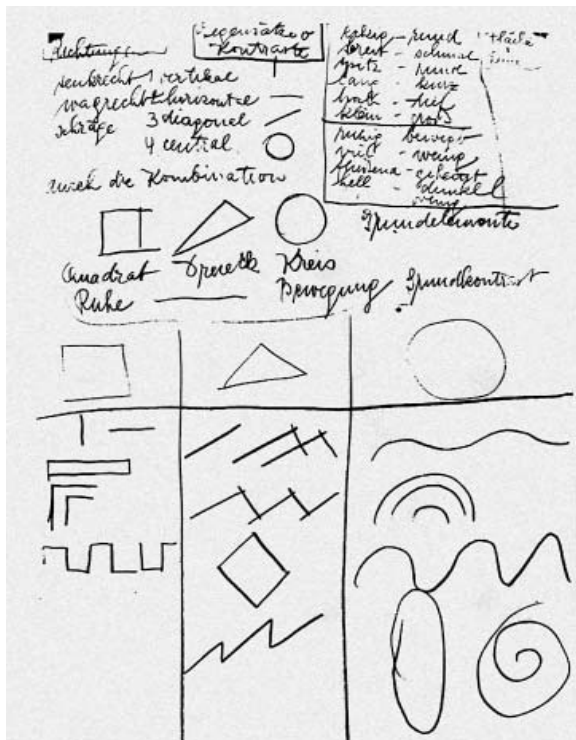 Richtungen
Gegensätze o
Kontraste
senkrecht 1 vertikal
wagrecht 2 horizontal
schräge 3 diagonal
4 central
eckig - rund
breit - schmal
spitz - rund
lang - kurz
hoch - tief
klein - groß
ruhig bewegt
viel - wenig
hell - dunkel
wenig
durch die Kombination
Grundelemente
Quadrat Dreieck Kreis
Ruhe Bewegung Grundkontrast